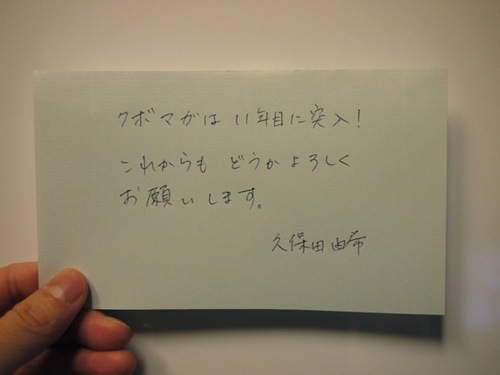 クボマガは 11年目に突入!
これからも どうかよろしく
お願いします。
久保田由希